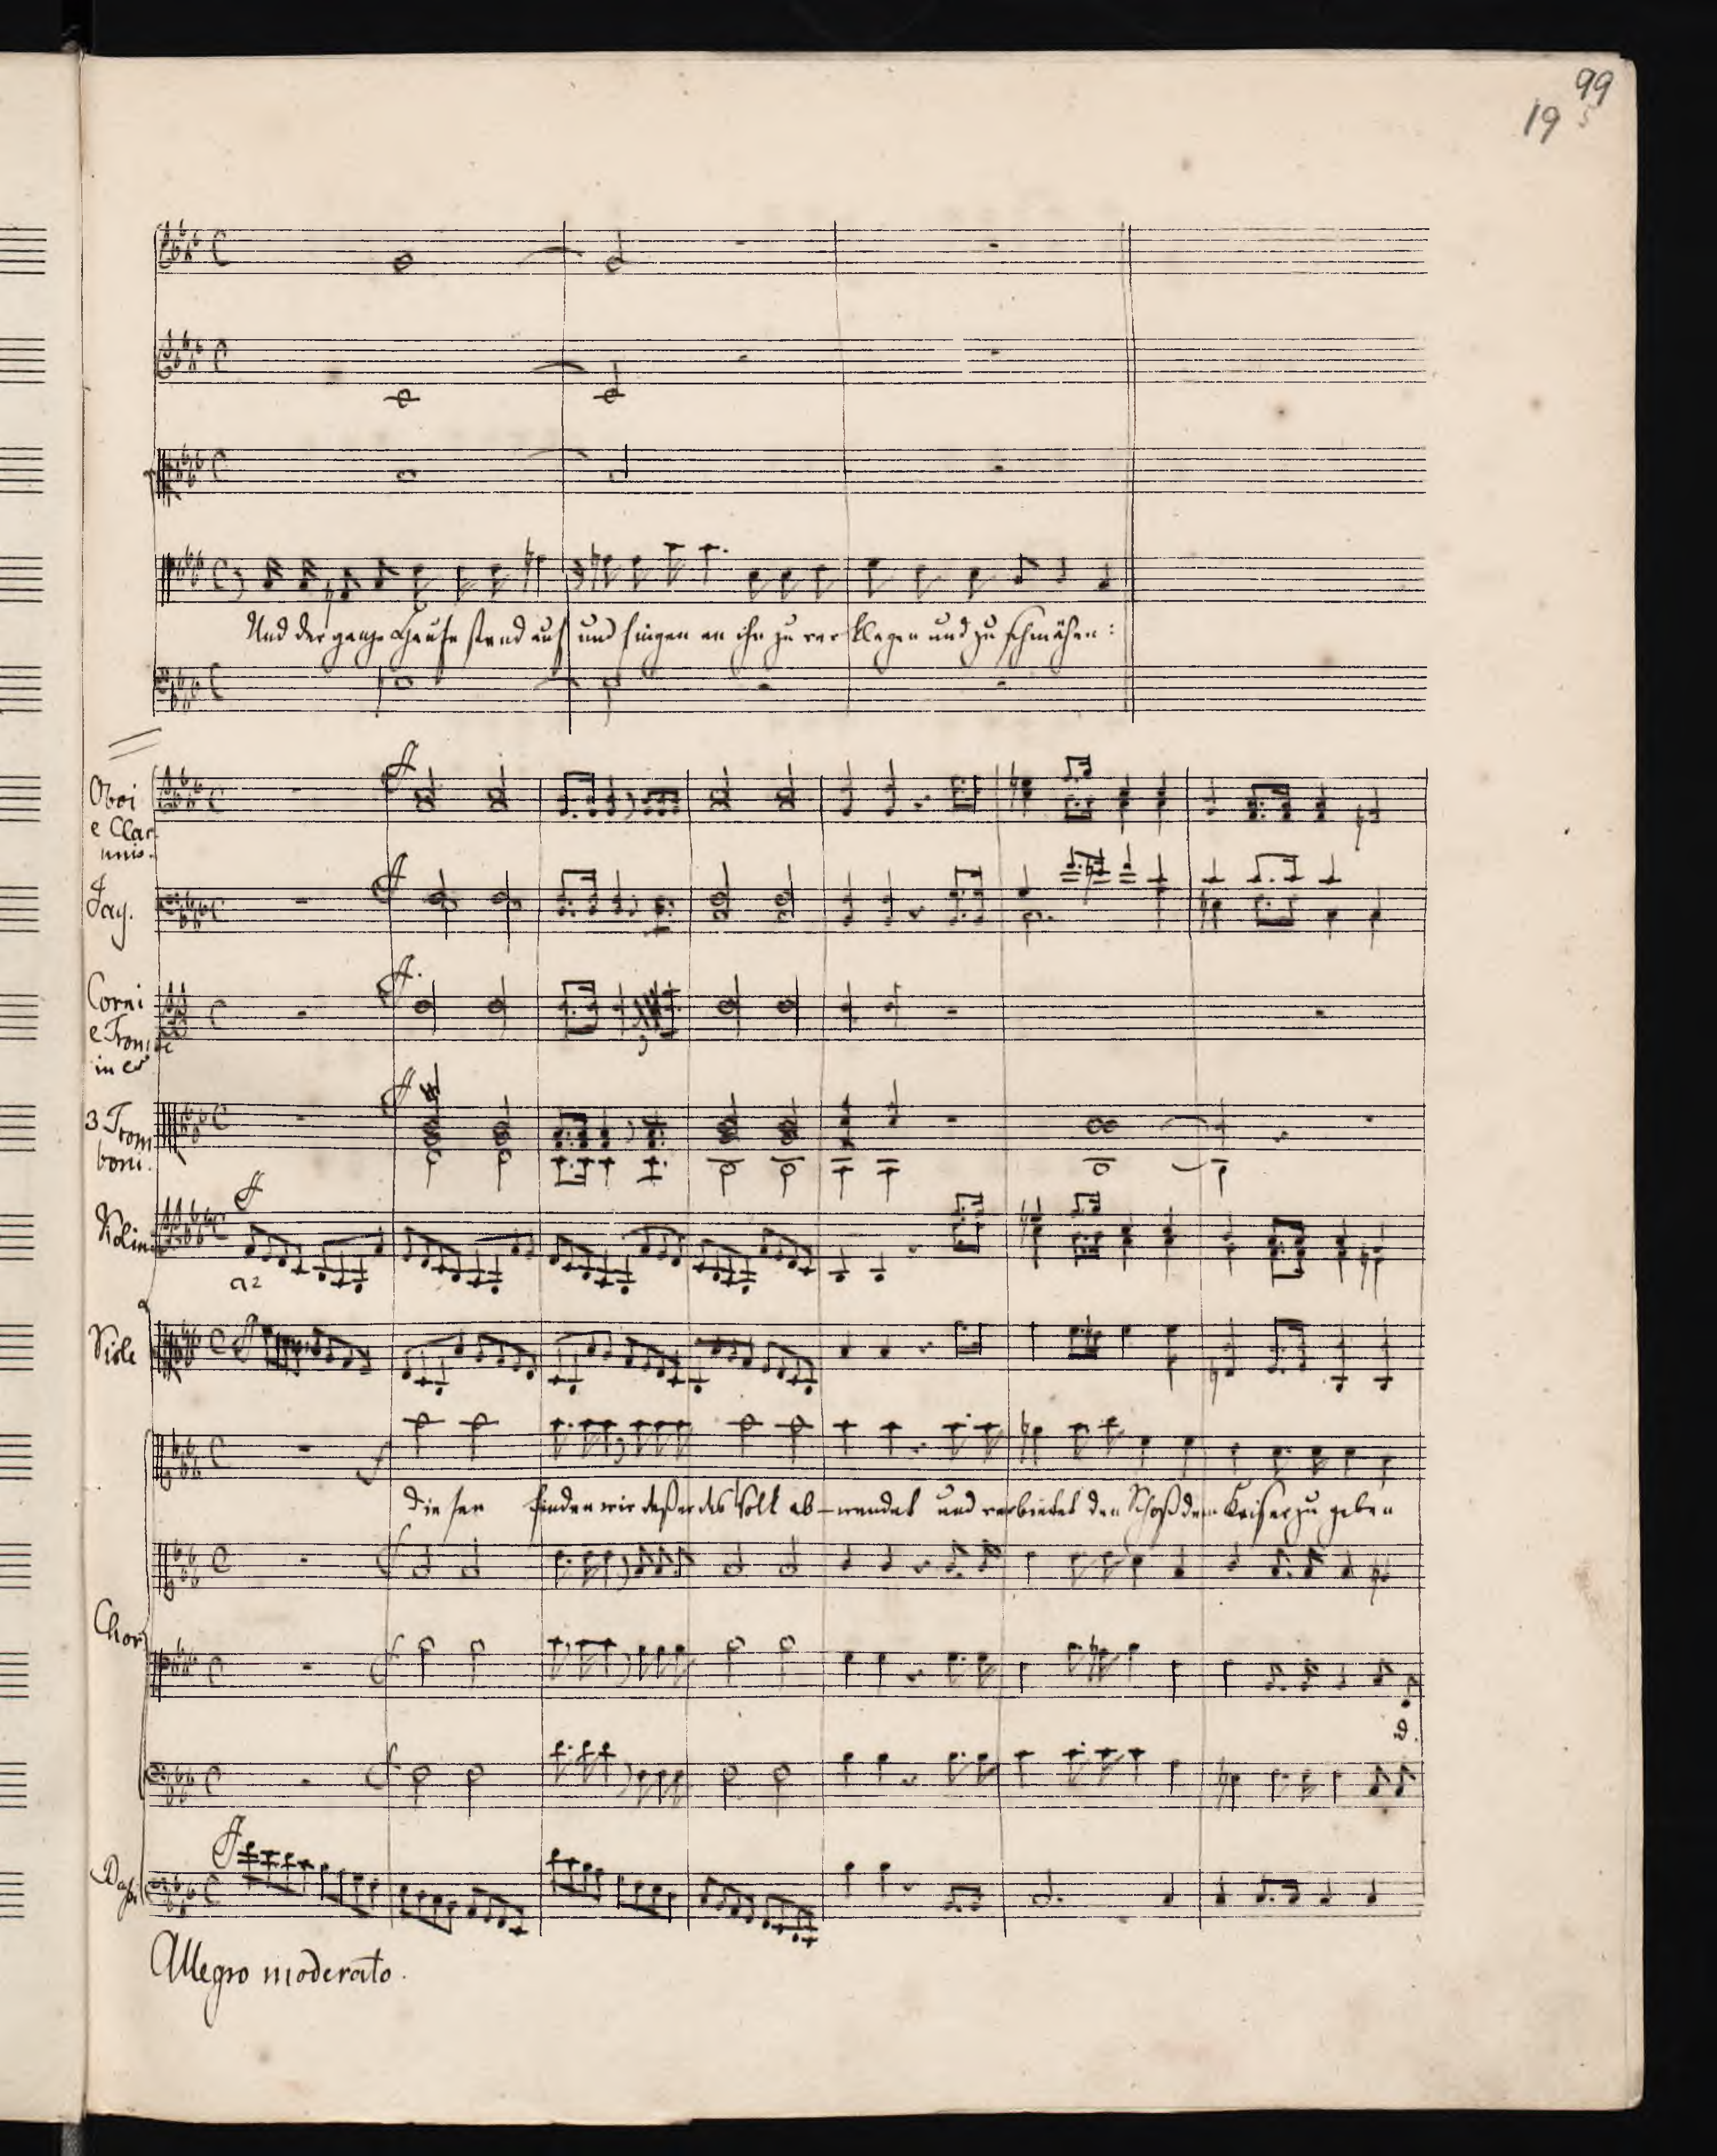 99
19 5
Und der ganze Haufe stand auf und fingen an ihn zu verklagen und zu schmähen:
Oboi
e Clar
unis.
f
Fag.
f
Corni
e Trombe
in es
f.
3 Trom
boni.
f
Violini
f
a2
Viole
f
f
Diesen finden wir daß er das Volk ab-wendet und verbietet den Schoß dem Kaiser zu geben
f
Chor
f
d.
f
Bassi
f
Allegro moderato.